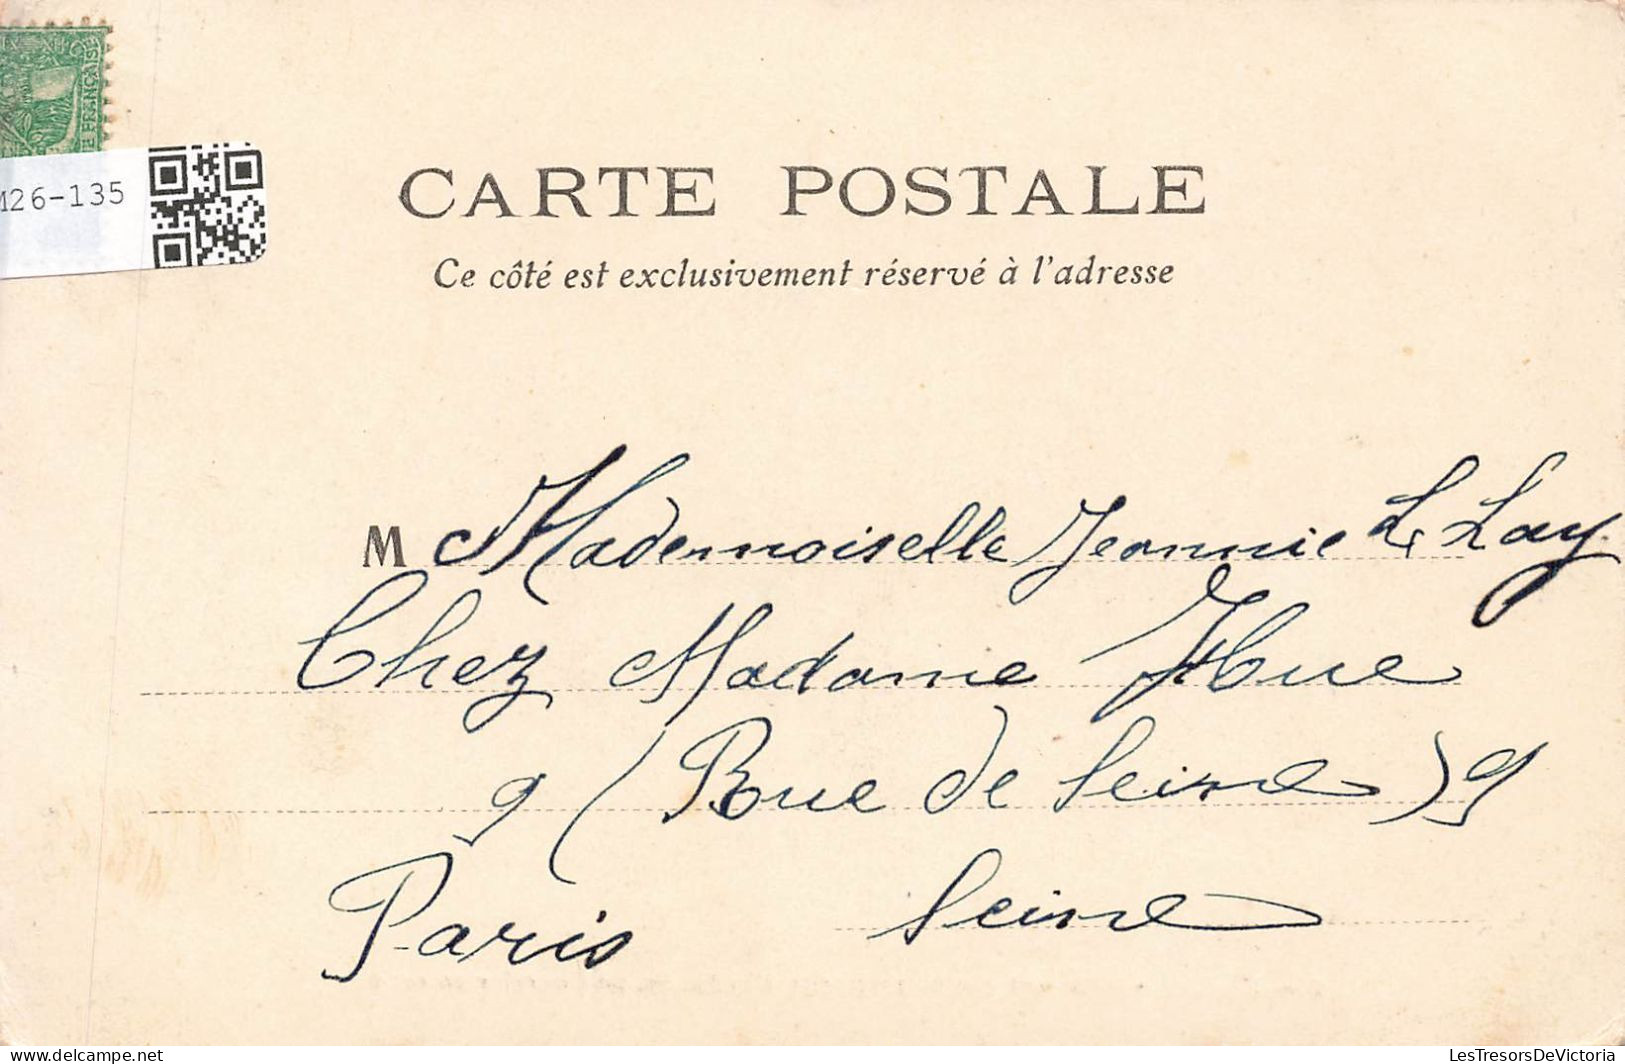 E FRANÇAISE
M26-135
CARTE POSTALE
Ce côté est exclusivement réservé à l'adresse
M Mademoiselle Jeannie Le Lay
Chez Madame Hue
9 (Rue de Seine) 9
Paris Seine
LesTresorsDeVictoria
www.delcampe.net